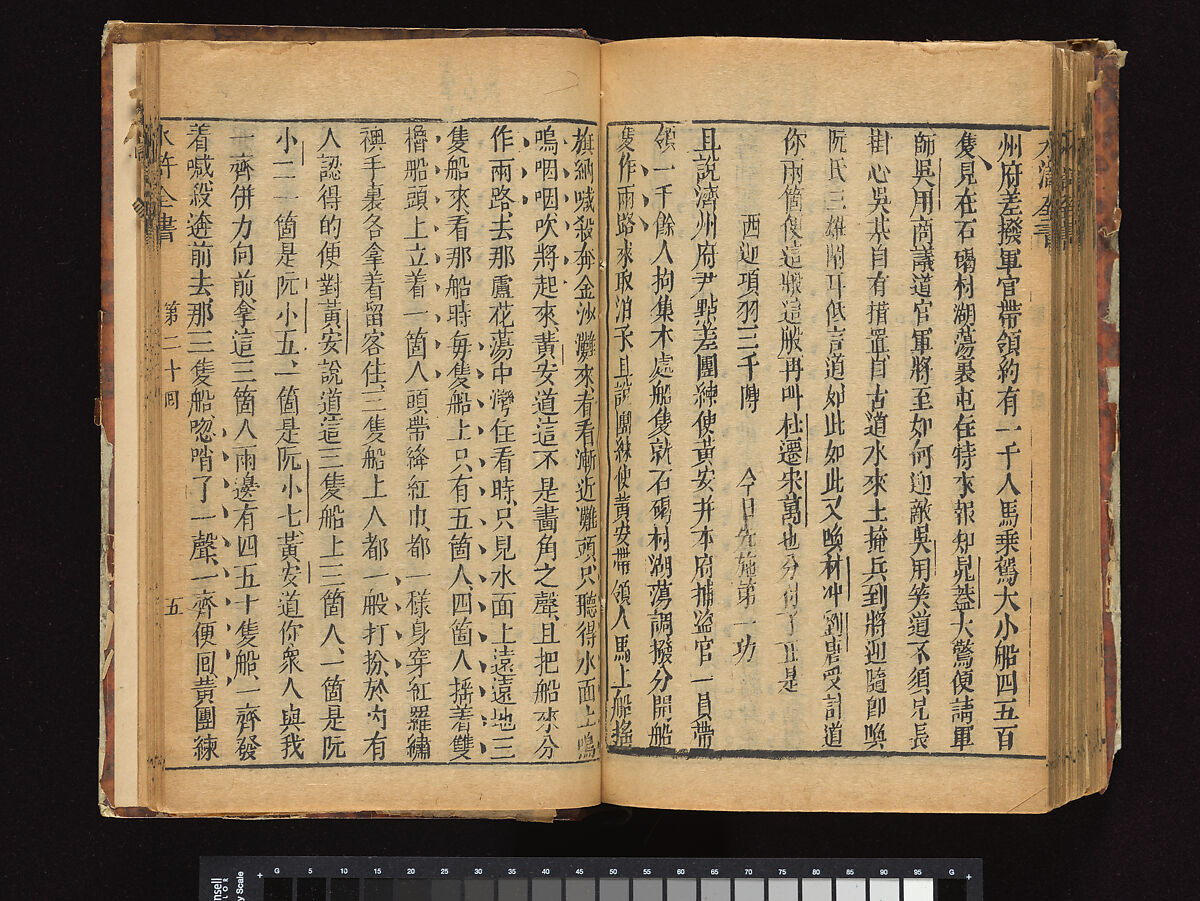 水滸全書
州府差撥軍官帶領約有一千人馬乘駕大小船四五百
隻見在石碣村湖蕩裏屯住特來報知晁蓋大驚便請軍
師吳用商議道官軍將至如何迎敵吳用笑道不須兄長
掛心吳某自有措置自古道水來土掩兵到將迎隨即喚
阮氏三雄附耳低言道如此如此又喚林冲劉唐受計道
你兩箇便這般這般再叫杜遷宋萬也分付了正是
西迎項羽三千陣 今日先施第一功
且說濟州府尹點差團練使黃安并本府捕盜官一員帶
領一千餘人拘集本處船隻就石碣村湖蕩調撥分開船
隻作兩路來取泊子且說團練使黃安帶領人馬上船搖
旗納喊殺奔金沙灘來看看漸近灘頭只聽得水面上嗚
嗚咽咽吹將起來黃安道這不是畫角之聲且把船來分
作兩路去那蘆花蕩中灣住看時只見水面上遠遠地三
隻船來看那船時每隻船上只有五箇人四箇人搖着雙
櫓船頭上立着一箇人頭帶絳紅巾都一樣身穿紅羅繡
襖手裏各拿着留客住三隻船上人都一般打扮於內有
人認得的便對黃安說道這三隻船上三箇人一箇是阮
小二一箇是阮小五一箇是阮小七黃安道你衆人與我
一齊併力向前拿這三箇人兩邊有四五十隻船一齊發
着喊殺逩前去那三隻船唿哨了一聲一齊便回黃團練
水滸全書 第二十回 五